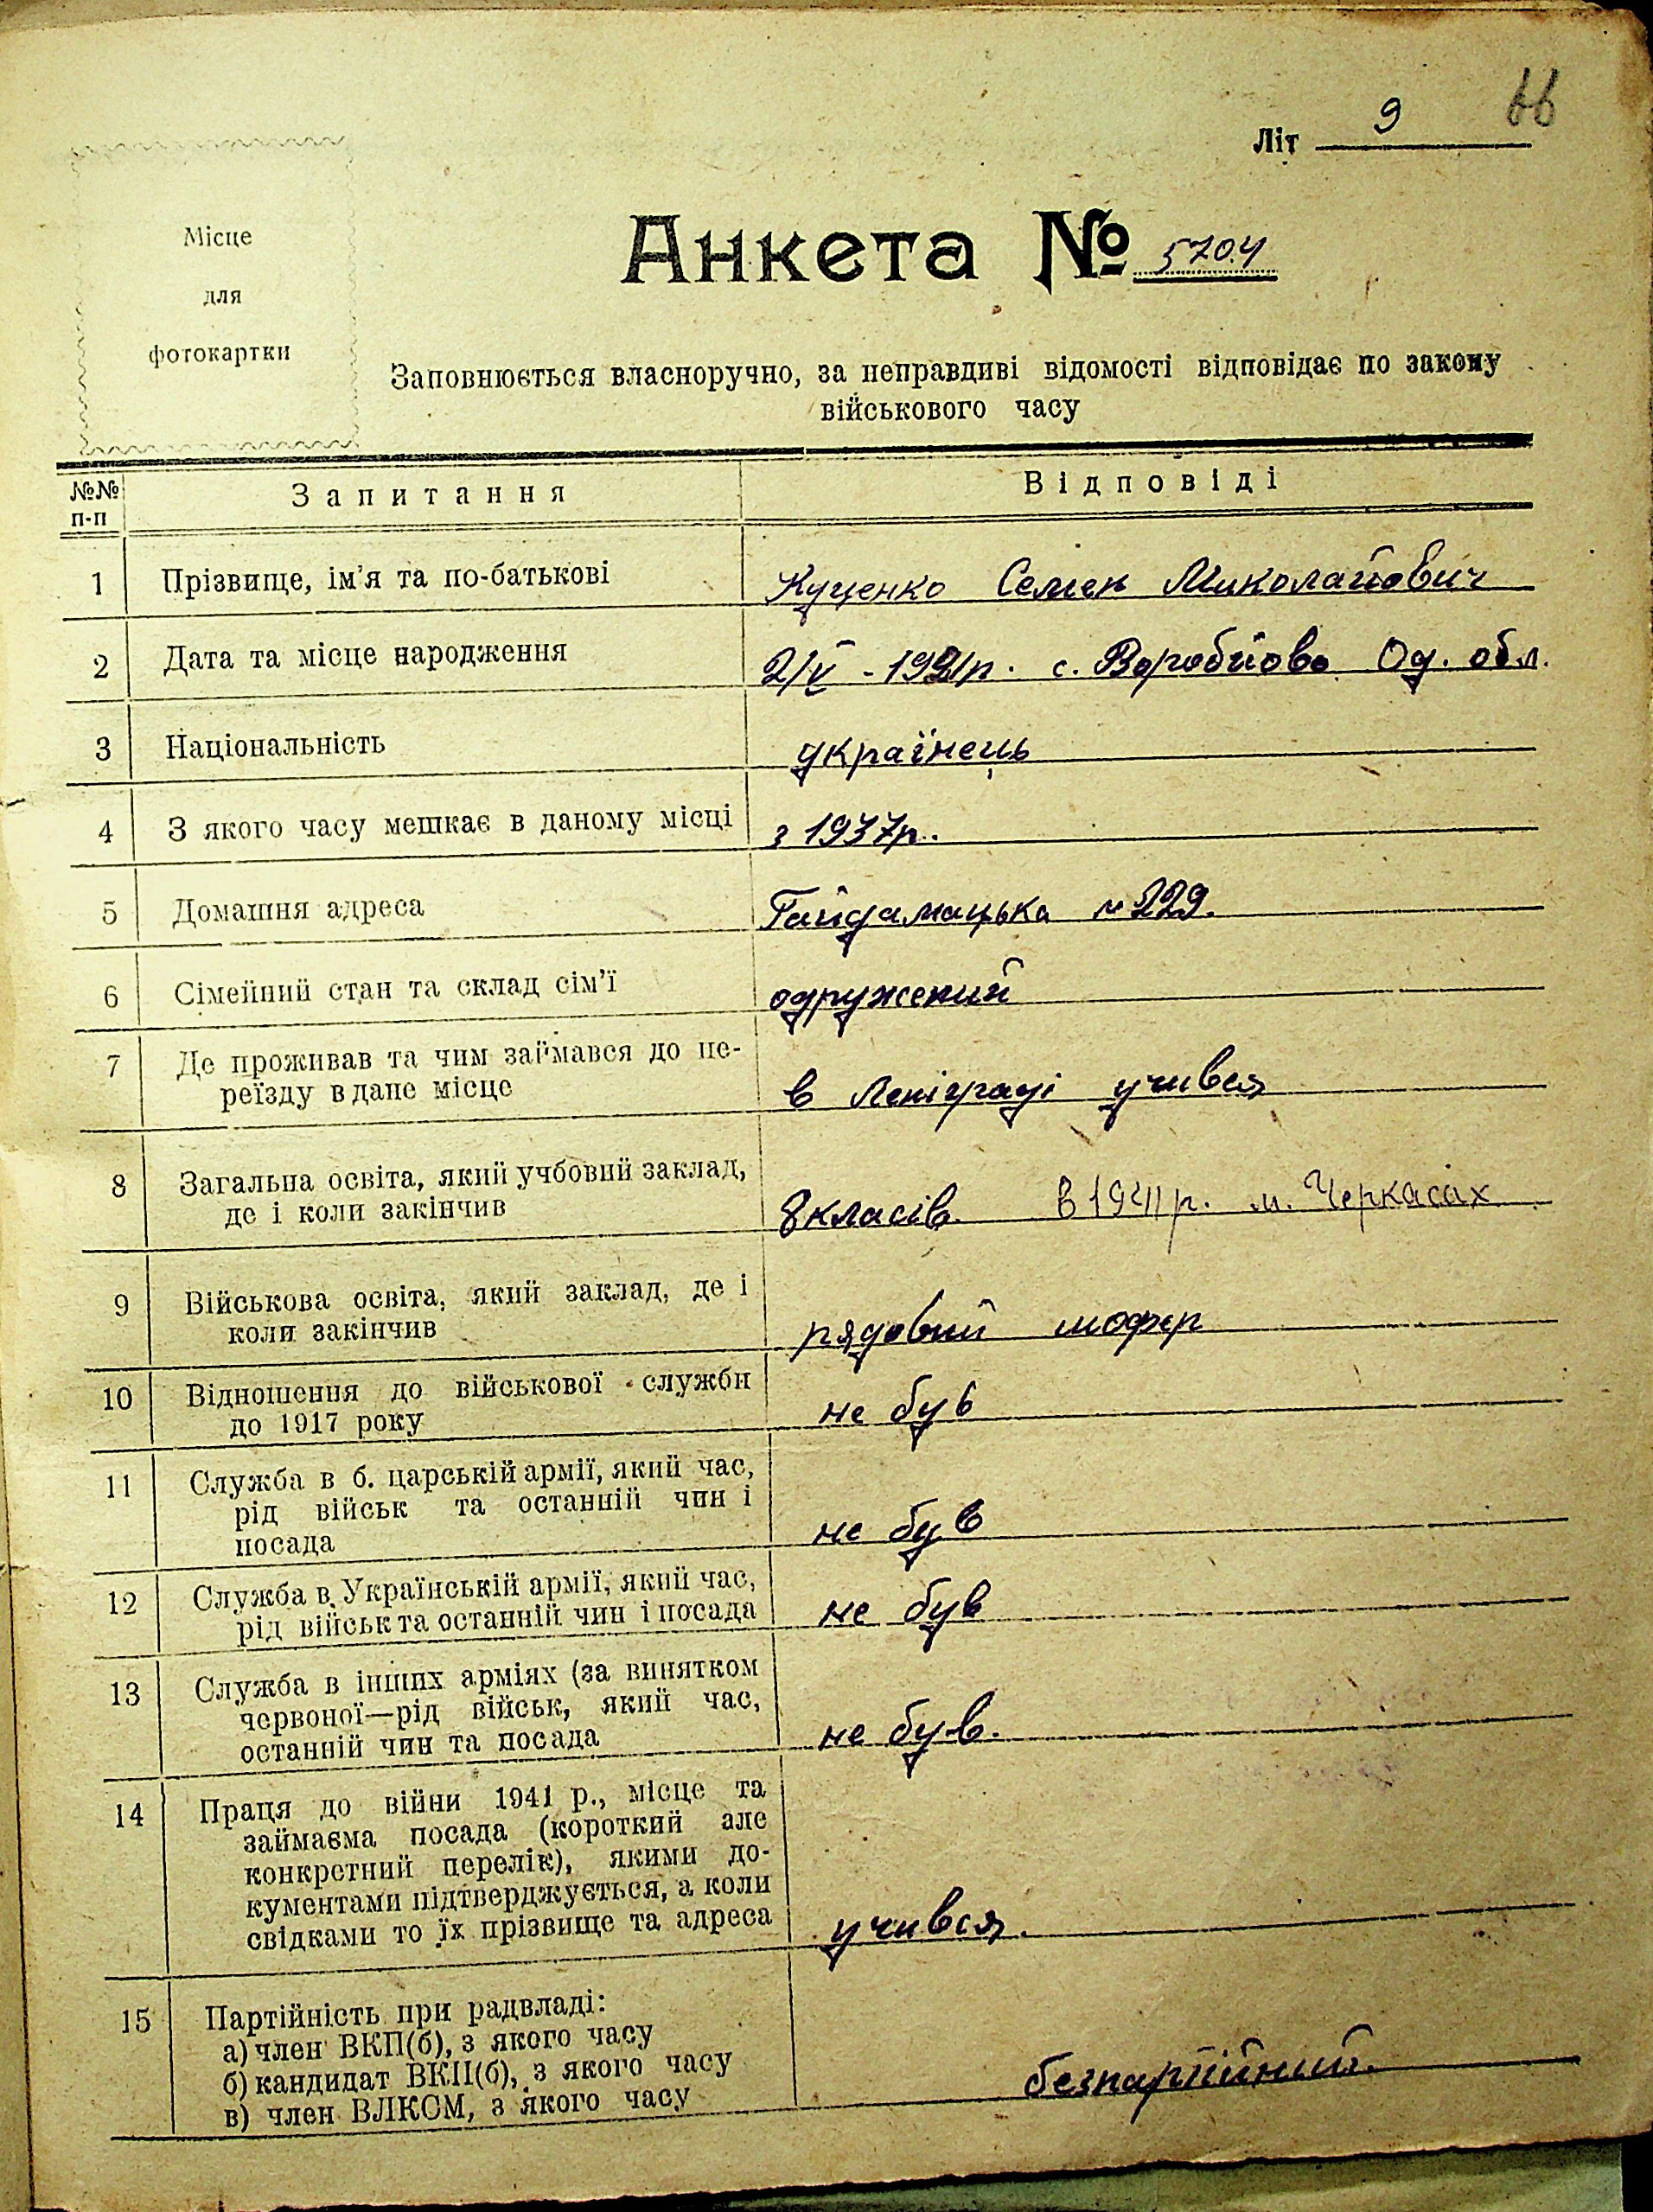 66
Літ 9
Місце
для
фотокартки
Анкета № 5704
Заповнюється власноручно, за неправдиві відомості відповідає по закону
військового часу
№№ п-п Запитання Відповіді
1 Прізвище, ім'я та по-батькові Куценко Семен Миколайович
2 Дата та місце народження 2/V - 1921р. с. Воробйово Од. обл.
3 Національність українець
4 З якого часу мешкає в даному місці з 1937р.
5 Домашня адреса Гайдамацька № 229.
6 Сімейний стан та склад сім'ї одружений
7 Де проживав та чим займався до пе-
реїзду в дане місце в Лениграді учився
8 Загальна освіта, який учбовий заклад,
де і коли закінчив 8 класів. в 1941 р. м. Черкасах
9 Військова освіта, який заклад, де і
коли закінчив рядовий шофер
10 Відношення до військової служби
до 1917 року не був
11 Служба в б. царській армії, який час,
рід військ та останній чин і
посада не був
12 Служба в Українській армії, який час,
рід військ та останній чин і посада не був
13 Служба в інших арміях (за винятком
червоної—рід військ, який час,
останній чин та посада не був.
14 Праця до війни 1941 р., місце та
займаєма посада (короткий але
конкретний перелік), якими до-
кументами підтверджується, а коли
свідками то їх прізвище та адреса учився.
15 Партійність при радвладі:
а) член ВКП(б), з якого часу
б) кандидат ВКП(б), з якого часу
в) член ВЛКСМ, з якого часу безпартійний.